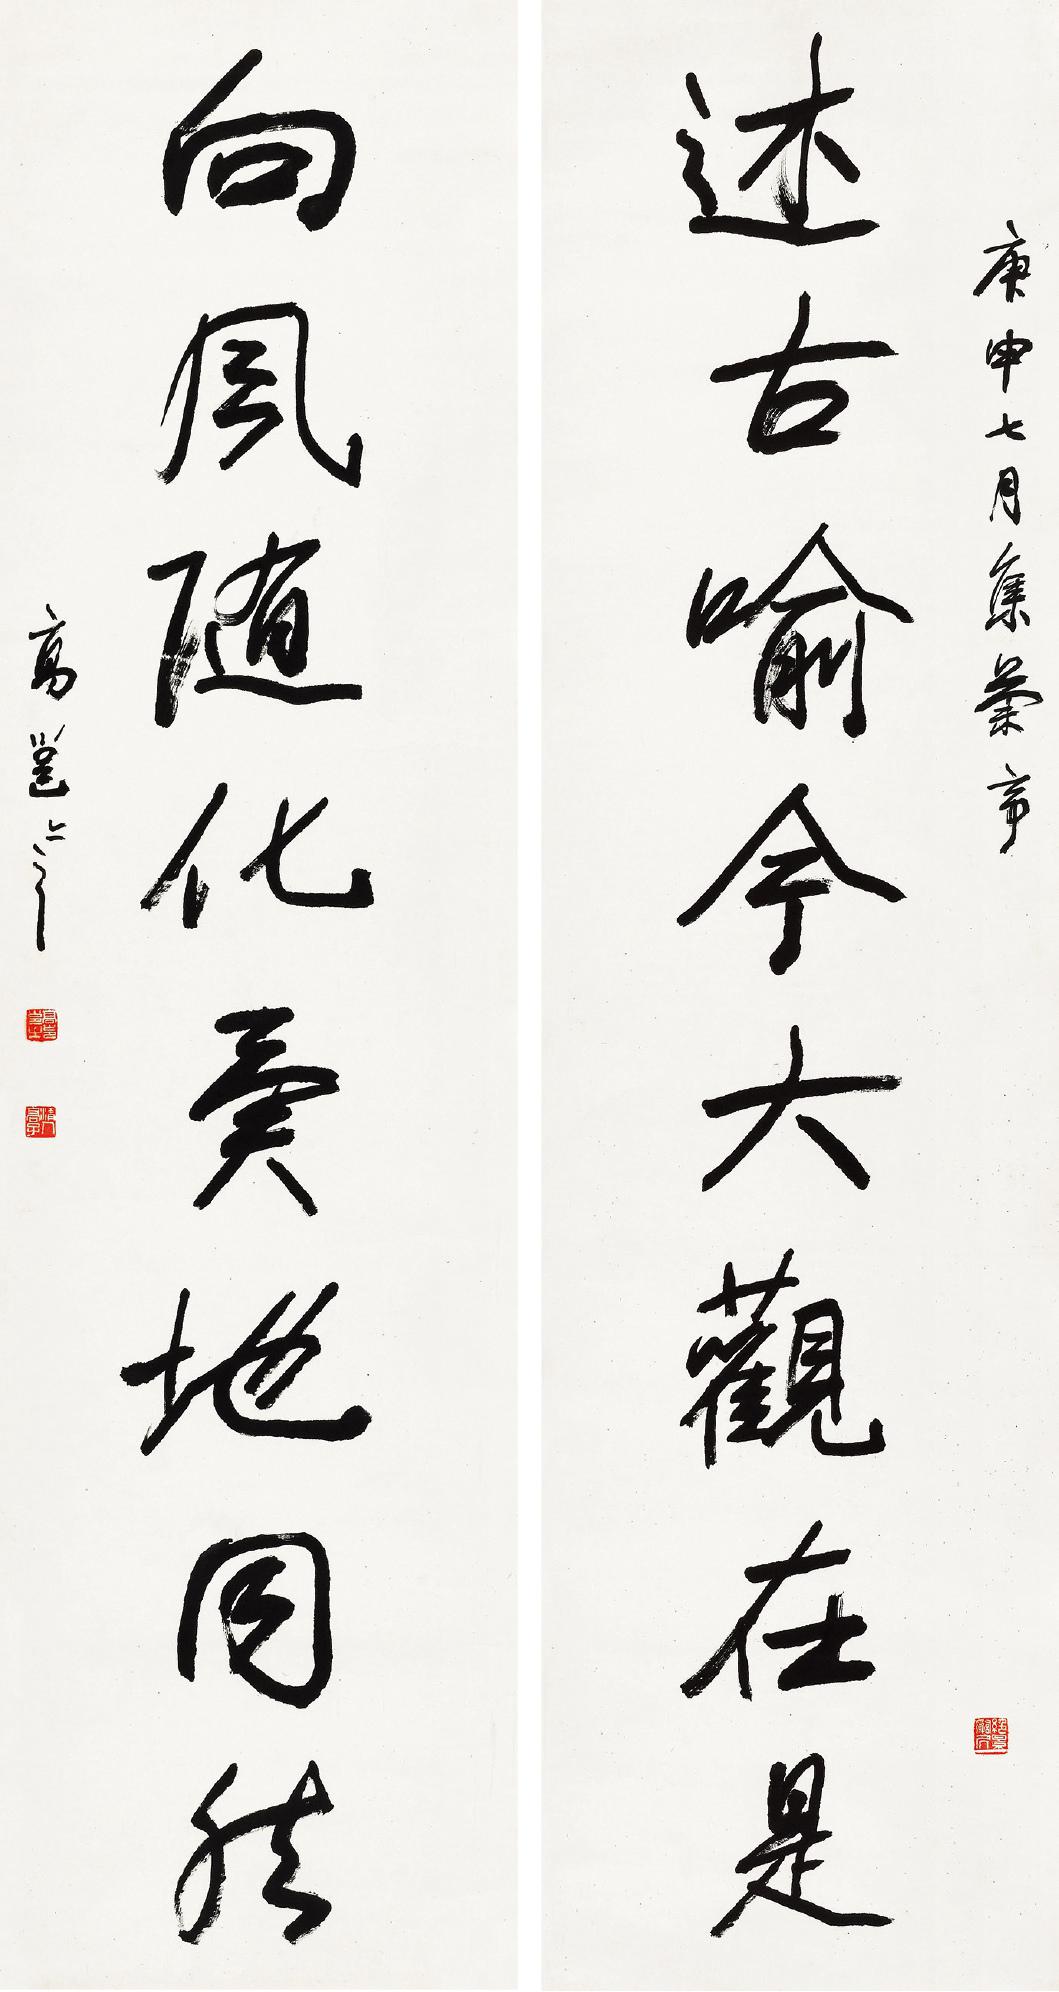 庚申七月集蘭亭
述古喻今大觀在是
向風随化異地同然
高邕